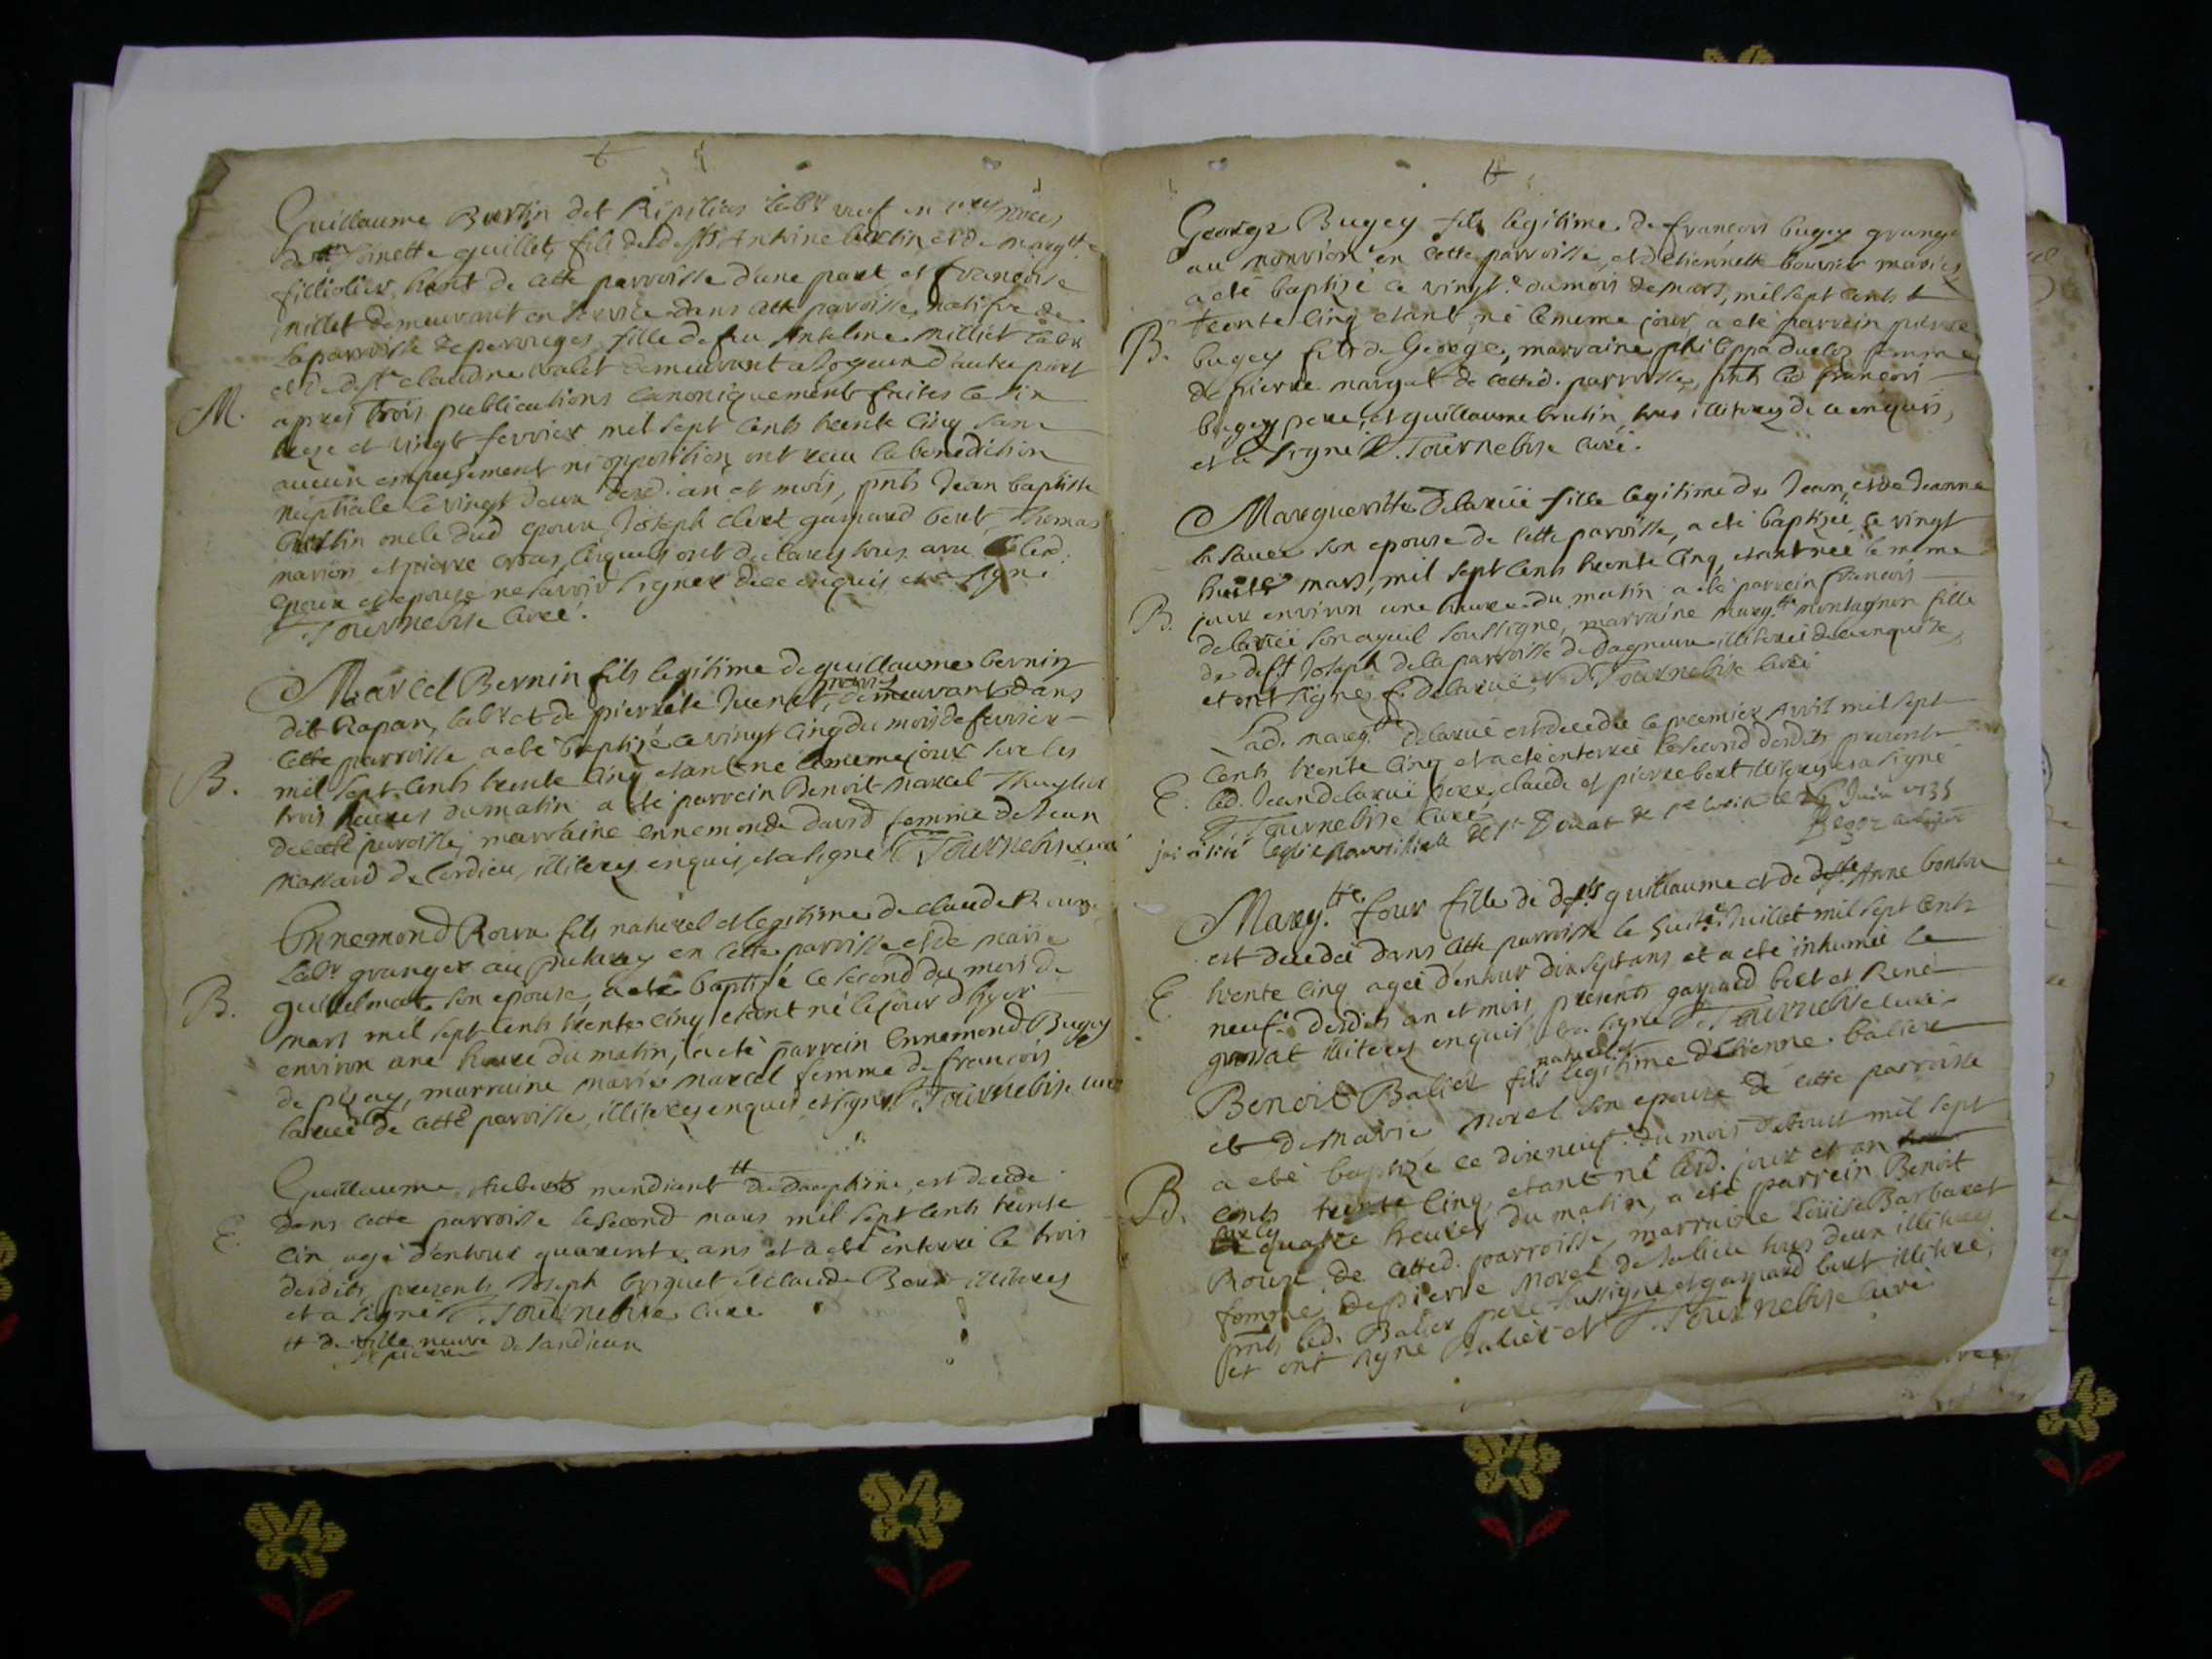 Guillaume Bertin dit Ripilias labr veuf en 1eres noces
de Toinette guillet, fils de def.ts Antoine bertin et de Margtte
filliolier habit de cette parroisse d'une part et francoise
millet demeurant en service dans cette paroisse, natifve de
la parroisse de perouges fille de feu Antelme Milliet labr
et de defte claudine valet demeurant a d'autre part
M. apres trois publications canoniquement faites le six
treze et vingt fevrier mil sept cents trente cinq sans
aucun empeschement ni opposition ont receu la benediction
nuptiale le vingt deux desd. an et mois, pnts Jean baptiste
bertin oncle dud epoux, Joseph clerc gaspard bert, thomas
marion et pierre lesquels ont declarez tous avec led.
epoux et epouse ne savoir signer de ce enquis et a signé
Tournebise curé.
Marcel Bernin fils legitime de guillaume bernin
mariés
dit Rapan, labr et de pierrete Juenet, demeurant dans
cette parroisse a eté baptizé ce vingt cinq du mois de fevrier
B. mil sept cents trente cinq etant né le meme jour sur les
trois heures du matin a eté parrein Benoit Marcel
de cette paroisse, marraine Ennemonde David femme de Jean
de Cordieu, illiterez enquis, et a signé Tournebise curé
Ennemond Roux fils naturel et legitime de claude Roux
labr granger au en cette parroisse et de marie
guillelmat son epouse, a eté baptizé ce second du mois de
B. mars mil sept cents trente cinq etant né le jour d'hyer
environ une heure du matin, a eté parrein Ennemond Bugey
de pizay, marraine marie marcel femme de francois
larue de cette paroisse, illiterez enquis et signé Tournebise curé
Guillaume Aubert mendiant # de Dauphiné, est decedé
dans cette parroisse le second mars mil sept cents trente
E. cin, agé d'entour quarente ans et a eté enterré le trois
desdits presents Joseph briguet et Claude Bert illiterez
et a signé Tournebise curé
# de ville neuve de
George Bugey fils legitime de francois bugey grange
au Monrion en cette parroisse, et d'etiennette bouvier mariés
a eté baptizé ce vingt.e du mois de mars, mil sept cents
trente cinq etant né le meme jour, a eté parrein pierre
B. bugey fils de George, marraine philippa duclos femme
de pierre marguet de cetted. parroisse, pnts led francois
bugey pere, et guillaume brutin, tous illiterez de ce enquis,
et a signé Tournebise curé.
Marguerite Delarüe fille legitime de Jean, et de Jeanne
la son epouse de cette paroisse, a eté baptizée ce vingt
huite mars, mil sept cents trente cinq, etant née le meme
B. jour environ une heure du matin a eté parrein francois
delarüe son ayeul soussigné, marraine margtte montagnon fille
de deft Joseph de la parroisse de Dagneux illiterée de ce enquise,
et ont signé f. Delarue, Tournebise curé
Lad. margtte delarüe est decedée le premier Avril mil sept
cents trente cinq et a eté enterrée le second desdits presents
E. led. Jean delarüe pere, claude et pierre bert illiterez et a signé
Tournebise curé
jai visité leglise parroissialle de le 26 Juin 1735
Marg.tte four fille de def.ts guillaume et de defte Anne bontu
est decedée dans cette parroisse le huite. Juillet mil sept cents
E. trente cinq agée d'entour dix sept ans et a eté inhumée le
neuf.e desdits an et mois, presents gaspard bert et René
grossat illiterez enquis et a signé Tournebise curé
naturel et
Benoit Balier fils legitime d'Etienne balier
et de Marie Morel son epouse de cette parroisse
a eté baptizé ce dix neuf. du mois d'aoust mil sept
B. cents trente cinq, etant né lesd. jour et an
sur les quatre heures du matin, a eté parrein Benoit
Roux de cetted. parroisse, marraine Loüise Barbaret
femme de pierre Morel de tous deux illiterez
pnts led. Balier pere sussigné et gaspard bert illiteré,
et ont signé Balier et Tournebise curé